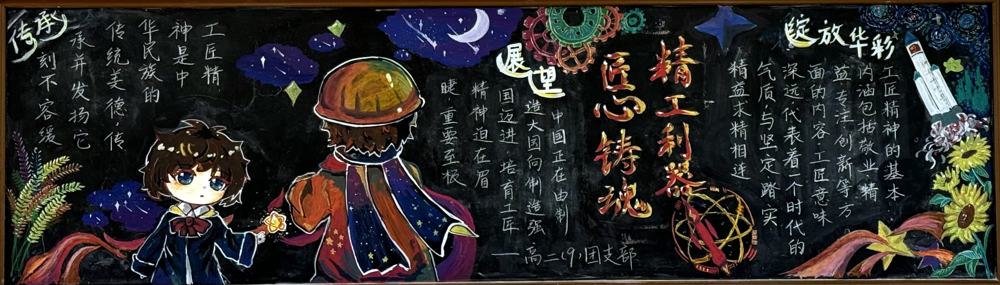 绽放华彩
工匠精神的基本
内涵包括敬业、精
益、专注、创新等方
面的内容.工匠意味
深远,代表着一个时代的
气质,与坚定、踏实、
精益求精相连
精工利器
匠心铸魂
展望
中国正在由制
造大国向制造强
国迈进,培育工匠
精神迫在眉
睫,重要至极
——高二(9)团支部
传承
工匠精
神是中
华民族的
传统美德,传
承并发扬它
刻不容缓